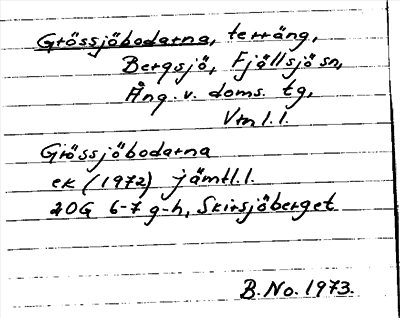 Grössjöbodarna, terräng,
Bergsjö, Fjällsjö sn,
Ång. v. doms. tg,
Vrnl. l.
Grössjöbodarna
ek (1972) jämtl. l.
20G 6-7 g-h, Skirsjöberget
B. No. 1973.